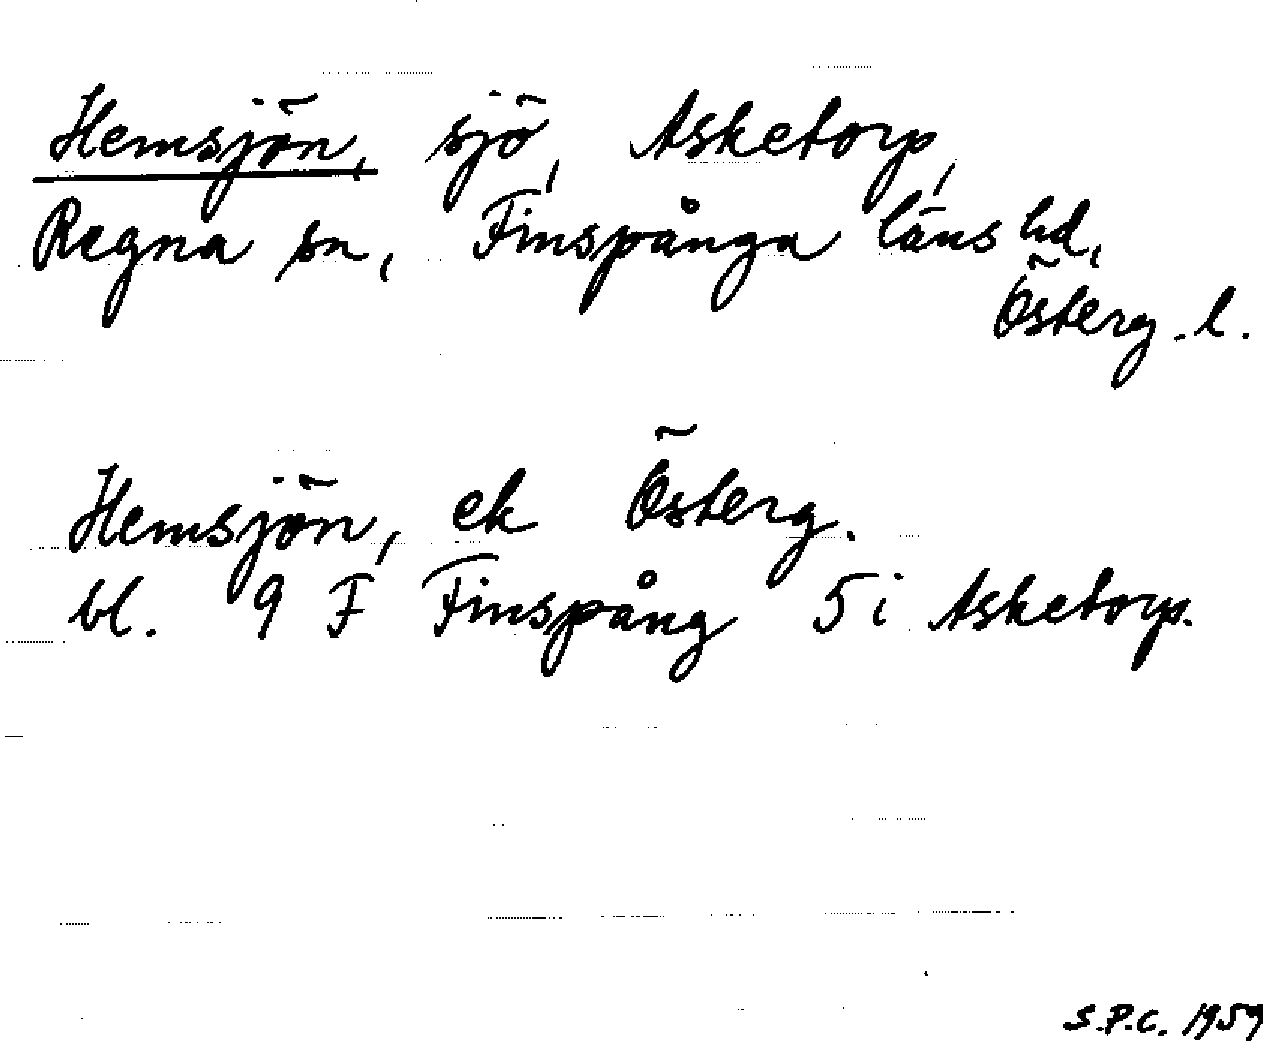 Hemsjön, sjö, Asketorp,
Regna sn, Finspånga läns hd,
Österg. l.
Hemsjön, ek Österg.
bl. 9 F Finspång 5 i Asketorp.
S.P.C. 1959